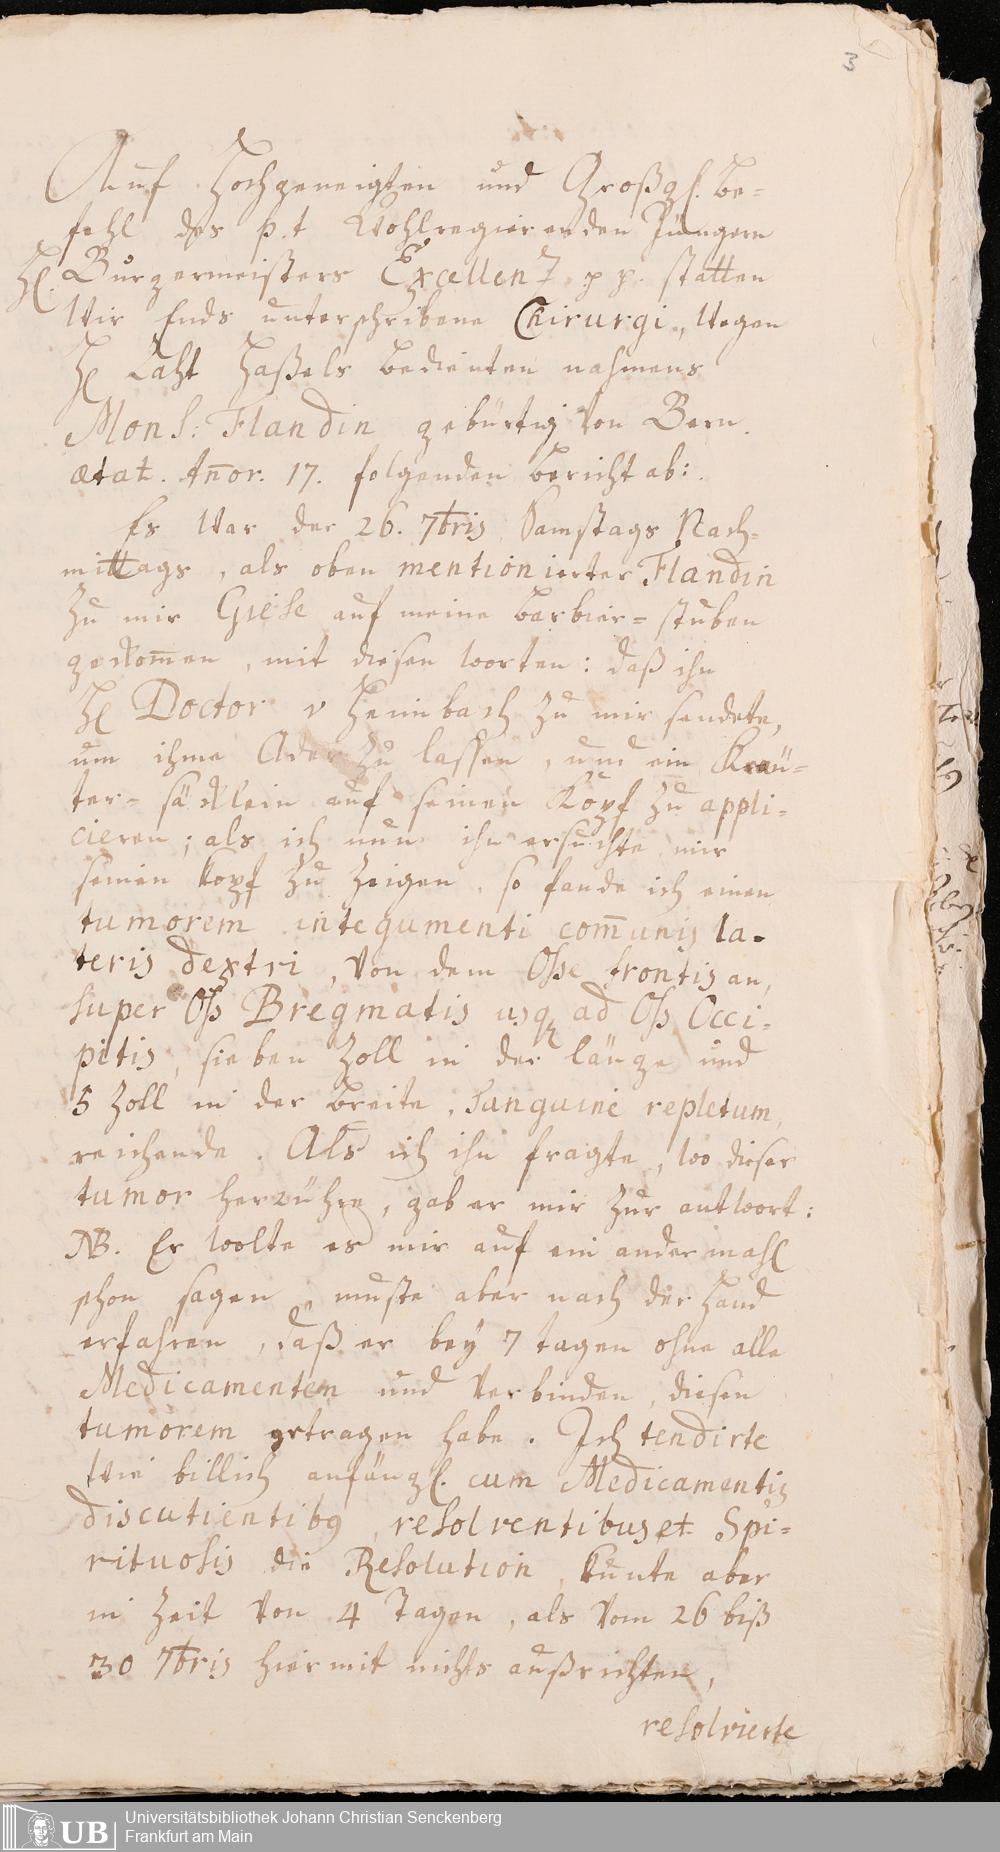 3
Auf Hochgeneigten und Großgl. Be-
fehl des p.t Wohlregierenden Jüngern
H. Burgermeisters Excellenz p p. statten
Wir Ends unterschribene Chirurgi, Wegen
H. Haßels bedienten nahmens
Mons: Flandin gebürtig von Bern
ætat. Añor. 17. folgenden bericht ab:
Es War der 26. 7bris Samstags Nach-
mittags, als oben mentionierter Flandin
zu mir Giese auf meine barbier-stuben
gekom̄en, mit diesen worten: daß ihn
H. Doctor v Heimbach zu mir sendete,
um ihme Ader zu lassen, und ein Kräu-
ter-säcklein auf seinen Kopf zu appli-
cieren; als ich nun ihn ersuchte mir
seinen kopf zu zeigen, so fande ich einen
tumorem integumenti com̄unis la-
teris dextri, von dem Osse frontis an,
super Oss Bregmatis usq ad Oss Occi-
pitis, sieben Zoll in der länge und
5 Zoll in der breite, sanguine repletum,
reichende. Als ich ihn fragte, wo dieser
tumor herrühre, gab er mir zur antwort:
NB. Er wolte es mir auf ein andermahl
schon sagen, muste aber nach der Hand
erfahren, daß er bey 7 tagen ohne alle
Medicamenten und verbinden, diesen
tumorem getragen habe. Ich tendirte
wie billich anfängl. cum Medicamentis
discutientib9, resolventibus et Spi-
rituosis die Resolution, kunte aber
in Zeit von 4 Tagen, als vom 26 biß
30 7bris hiermit nichts außrichten,
resolvierte
UB
Universitätsbibliothek Johann Christian Senckenberg
Frankfurt am Main